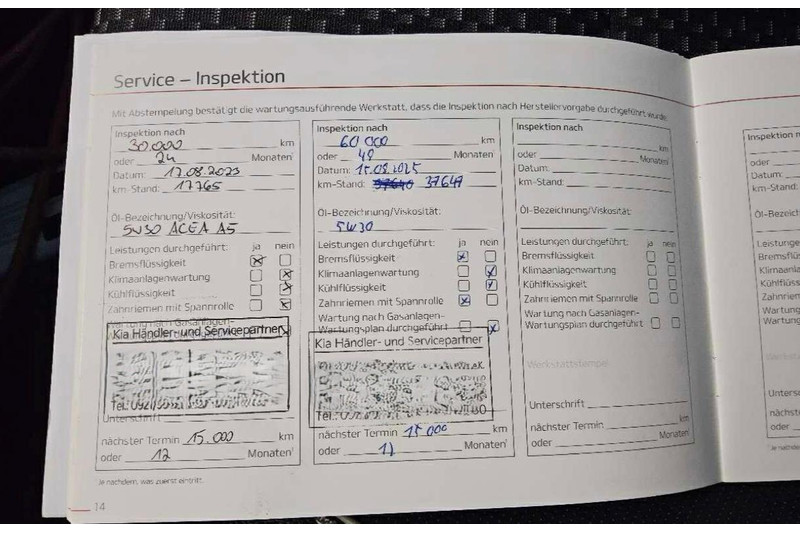 Service – Inspektion
Mit Abstempelung bestätigt die wartungsausführende Werkstatt, dass die Inspektion nach Herstellervorgabe durchgeführt wurde:
Inspektion nach
30.000 km
oder 24 Monaten¹
Datum: 17.08.2023
km-Stand: 17765
Öl-Bezeichnung/Viskosität:
5W30 ACEA A5
Leistungen durchgeführt: ja nein
Bremsflüssigkeit
Klimaanlagenwartung
Kühlflüssigkeit
Zahnriemen mit Spannrolle
Wartung nach Gasanlagen-
Kia Händler- und Servicepartner
Tel.
Unterschrift
nächster Termin 15.000 km
oder 12 Monaten¹
Inspektion nach
60 000 km
oder 48 Monaten¹
Datum: 15.08.2025
km-Stand: 37647
Öl-Bezeichnung/Viskosität:
5W30
Leistungen durchgeführt: ja nein
Bremsflüssigkeit
Klimaanlagenwartung
Kühlflüssigkeit
Zahnriemen mit Spannrolle
Wartung nach Gasanlagen-
Wartungsplan durchgeführt
Kia Händler- und Servicepartner
Tel.:
nächster Termin 15 000 km
oder Monaten¹
Inspektion nach
km
oder Monaten¹
Datum:
km-Stand:
Öl-Bezeichnung/Viskosität:
Leistungen durchgeführt: ja nein
Bremsflüssigkeit
Klimaanlagenwartung
Kühlflüssigkeit
Zahnriemen mit Spannrolle
Wartung nach Gasanlagen-
Wartungsplan durchgeführt
Werkstattstempel
Unterschrift
nächster Termin km
oder Monaten¹
¹Je nachdem, was zuerst eintritt.
14
Inspektion n
oder
Datum:
km-Stand:
Öl-Bezeichn
Leistunge
Bremsflüs
Klimaanl
Kühlflüs
Zahnrie
Wartun
Wartun
Unters
nächst
oder